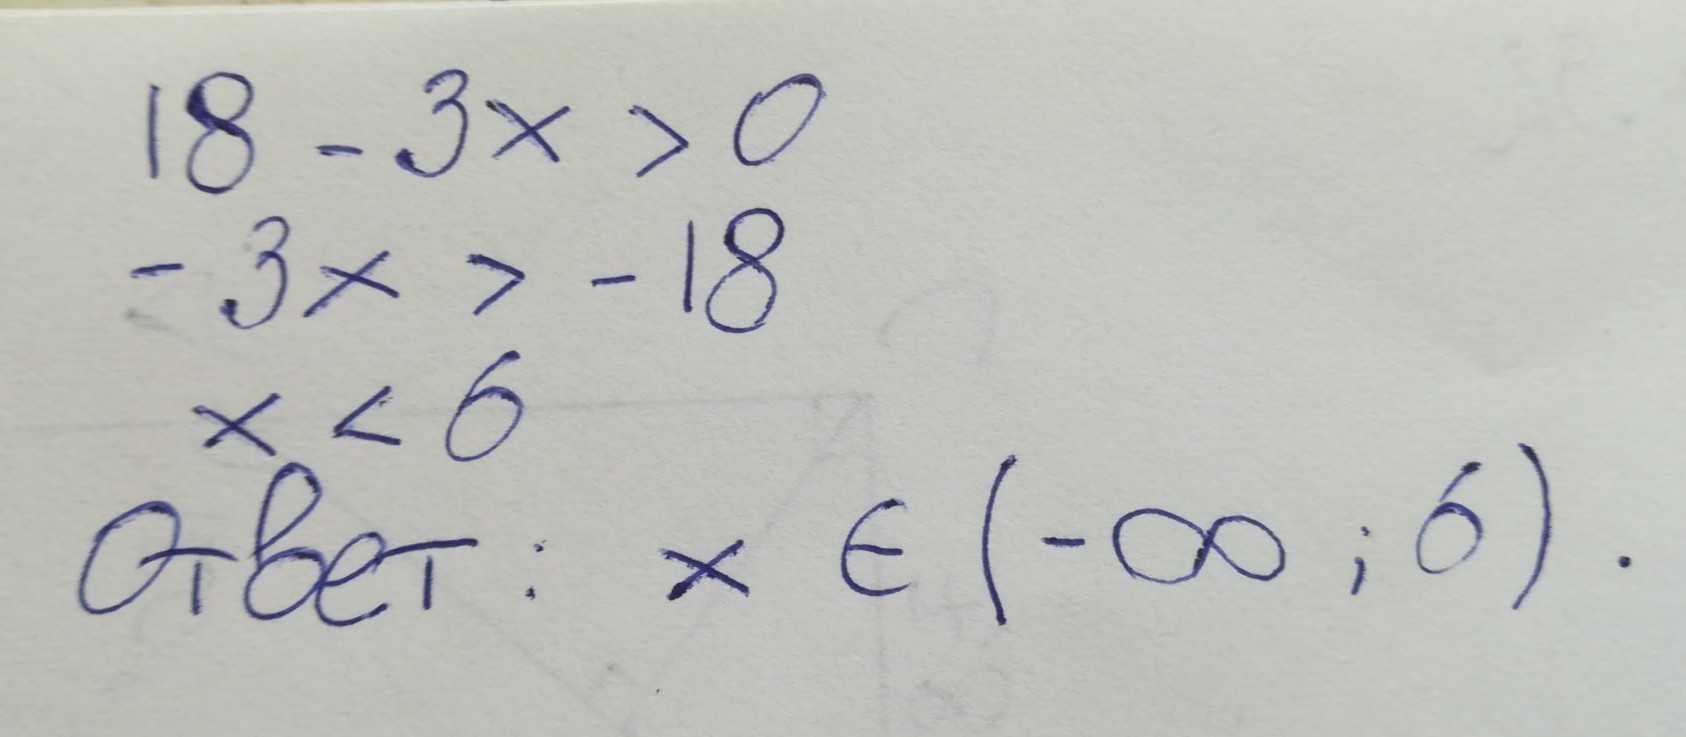 18 - 3x > 0
- 3x > - 18
x < 6
Ответ: x ∈ (-∞ ; 6).